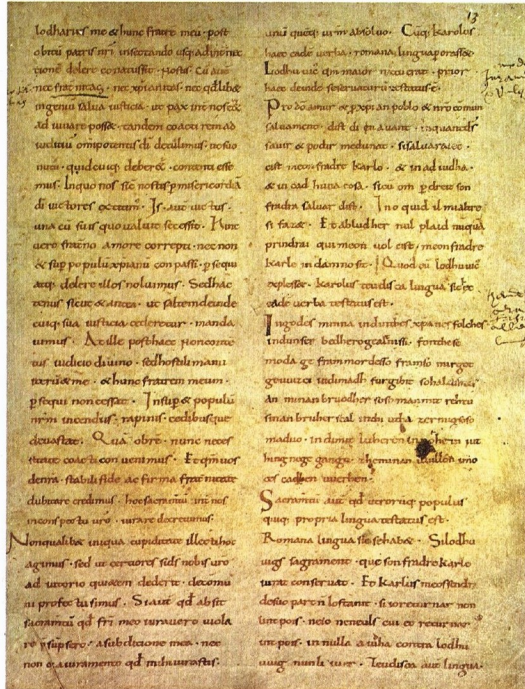 13
lodharius me & hunc fratrē meū · post
obitū patris nr̄i insectando usq; ad inter
tionē delere conatus sit · nostis · Cū aut̄
nec fr̄nitas · nec xp̄ianitas · nec qd̄libet
ingeniū salva iusticia · ut pax int̄ nos eēt
adiuvare posset · tandem coacti rem ad
iuditiū omnipotentis dī detulimus · ut suo
nutu · quid cuiq; deberet̄ · contenti esse
mus · In quo nos sic̄ nostis ꝑ misericordiā
dī victores extitim̄ · Is aut̄ victus ·
una cū suis quo valuit secessit · Hinc
vero fraterno amore correpti · nec non
& sup̄ populū xp̄ianū conpassi · ꝑsequi
atq; delere illos noluimus · Sed hac
tenus sicut & antea · ut saltem deinde
cuiq; sua iusticia cederetur · manda
vimus · At ille post haec non conten
tus iudicio divino · sed hostili manu
iterū & me · & hunc fratrem meum ·
ꝑsequi non cessat · Insup̄ & populū
nr̄m incendiis · rapinis · cedibusque
devastat · Quā obrē nunc neces
sitate coacti convenimus · Et qm̄ vos
de nr̄a stabili fide ac firma frat̄nitate
dubitare credimus · hoc sacram̄tū int̄ nos
in conspectu vr̄o · iurare decrevimus ·
Non qualibet iniqua cupiditate illecti hoc
agimus · sed ut certiores si dſ nobis vr̄o
adiutorio quietem dederit · de comu
ni profectu simus · Si aut̄ qd̄ absit
sacram̄tū qd̄ fr̄i meo iuravero viola
re ꝓsūpsero · a subditione mea · nec
non & a iuramento qd̄ mihi iurastis ·
unū quēq; vr̄m absolvo · Cūq; karolus
haec eadē verba · romana lingua ꝑorasset
Lodhuvic̄ qm̄ maior natu erat · prior
haec deinde se servaturū testatus ē ·
Pro dō amur & ꝑ xp̄ian poblo & nr̄o comun
salvament · dist di en avant · inquant dſ
savir & podir medunat · si salvarai eo
cist meon fradre karlo · & in ad iudha ·
& in cad huna cosa · si cū om ꝑ dreit son
fradra salvar dift · In o quid il mi altre
si faz& · Et ab ludher nul plaid nūquā
prindrai qui meon vol cist · meon fradre
karle in damno sit · Quod cū lodhuvic̄
explesset · karolus teudisca lingua sic̄ ec
eadē verba testatus est ·
In godes minna ind inthes xp̄anes folches
ind unser bedhero gealtnissi · fon thesemo
moda ge frammordesso framso mir got
geuuizci indi madh furgibit so hald ih tesan
an minan bruodher soso man mit rehtu
sinan bruher scal inthi utha zermigsoso
maduo · indi mit luheren in noheiniu
hing nege gango · zhe minan uuillon imo
ce scadhen uuerhen ·
Sacramtū aut̄ qd̄ utrorūq; populus
quiq; propria lingua testatus est ·
Romana lingua sic se hab& · Si lodhu
uigs sagrament · que son fradre karlo
iurat conservat · Et karlus meos sendr̄
de suo part n̄ lostanit · si io returnar non
lint pois · ne io ne neuls cui eo returnar
int pois · in nulla aiudha contra lodhu
uuig nun li iver · Teudisca aut̄ lingua ·